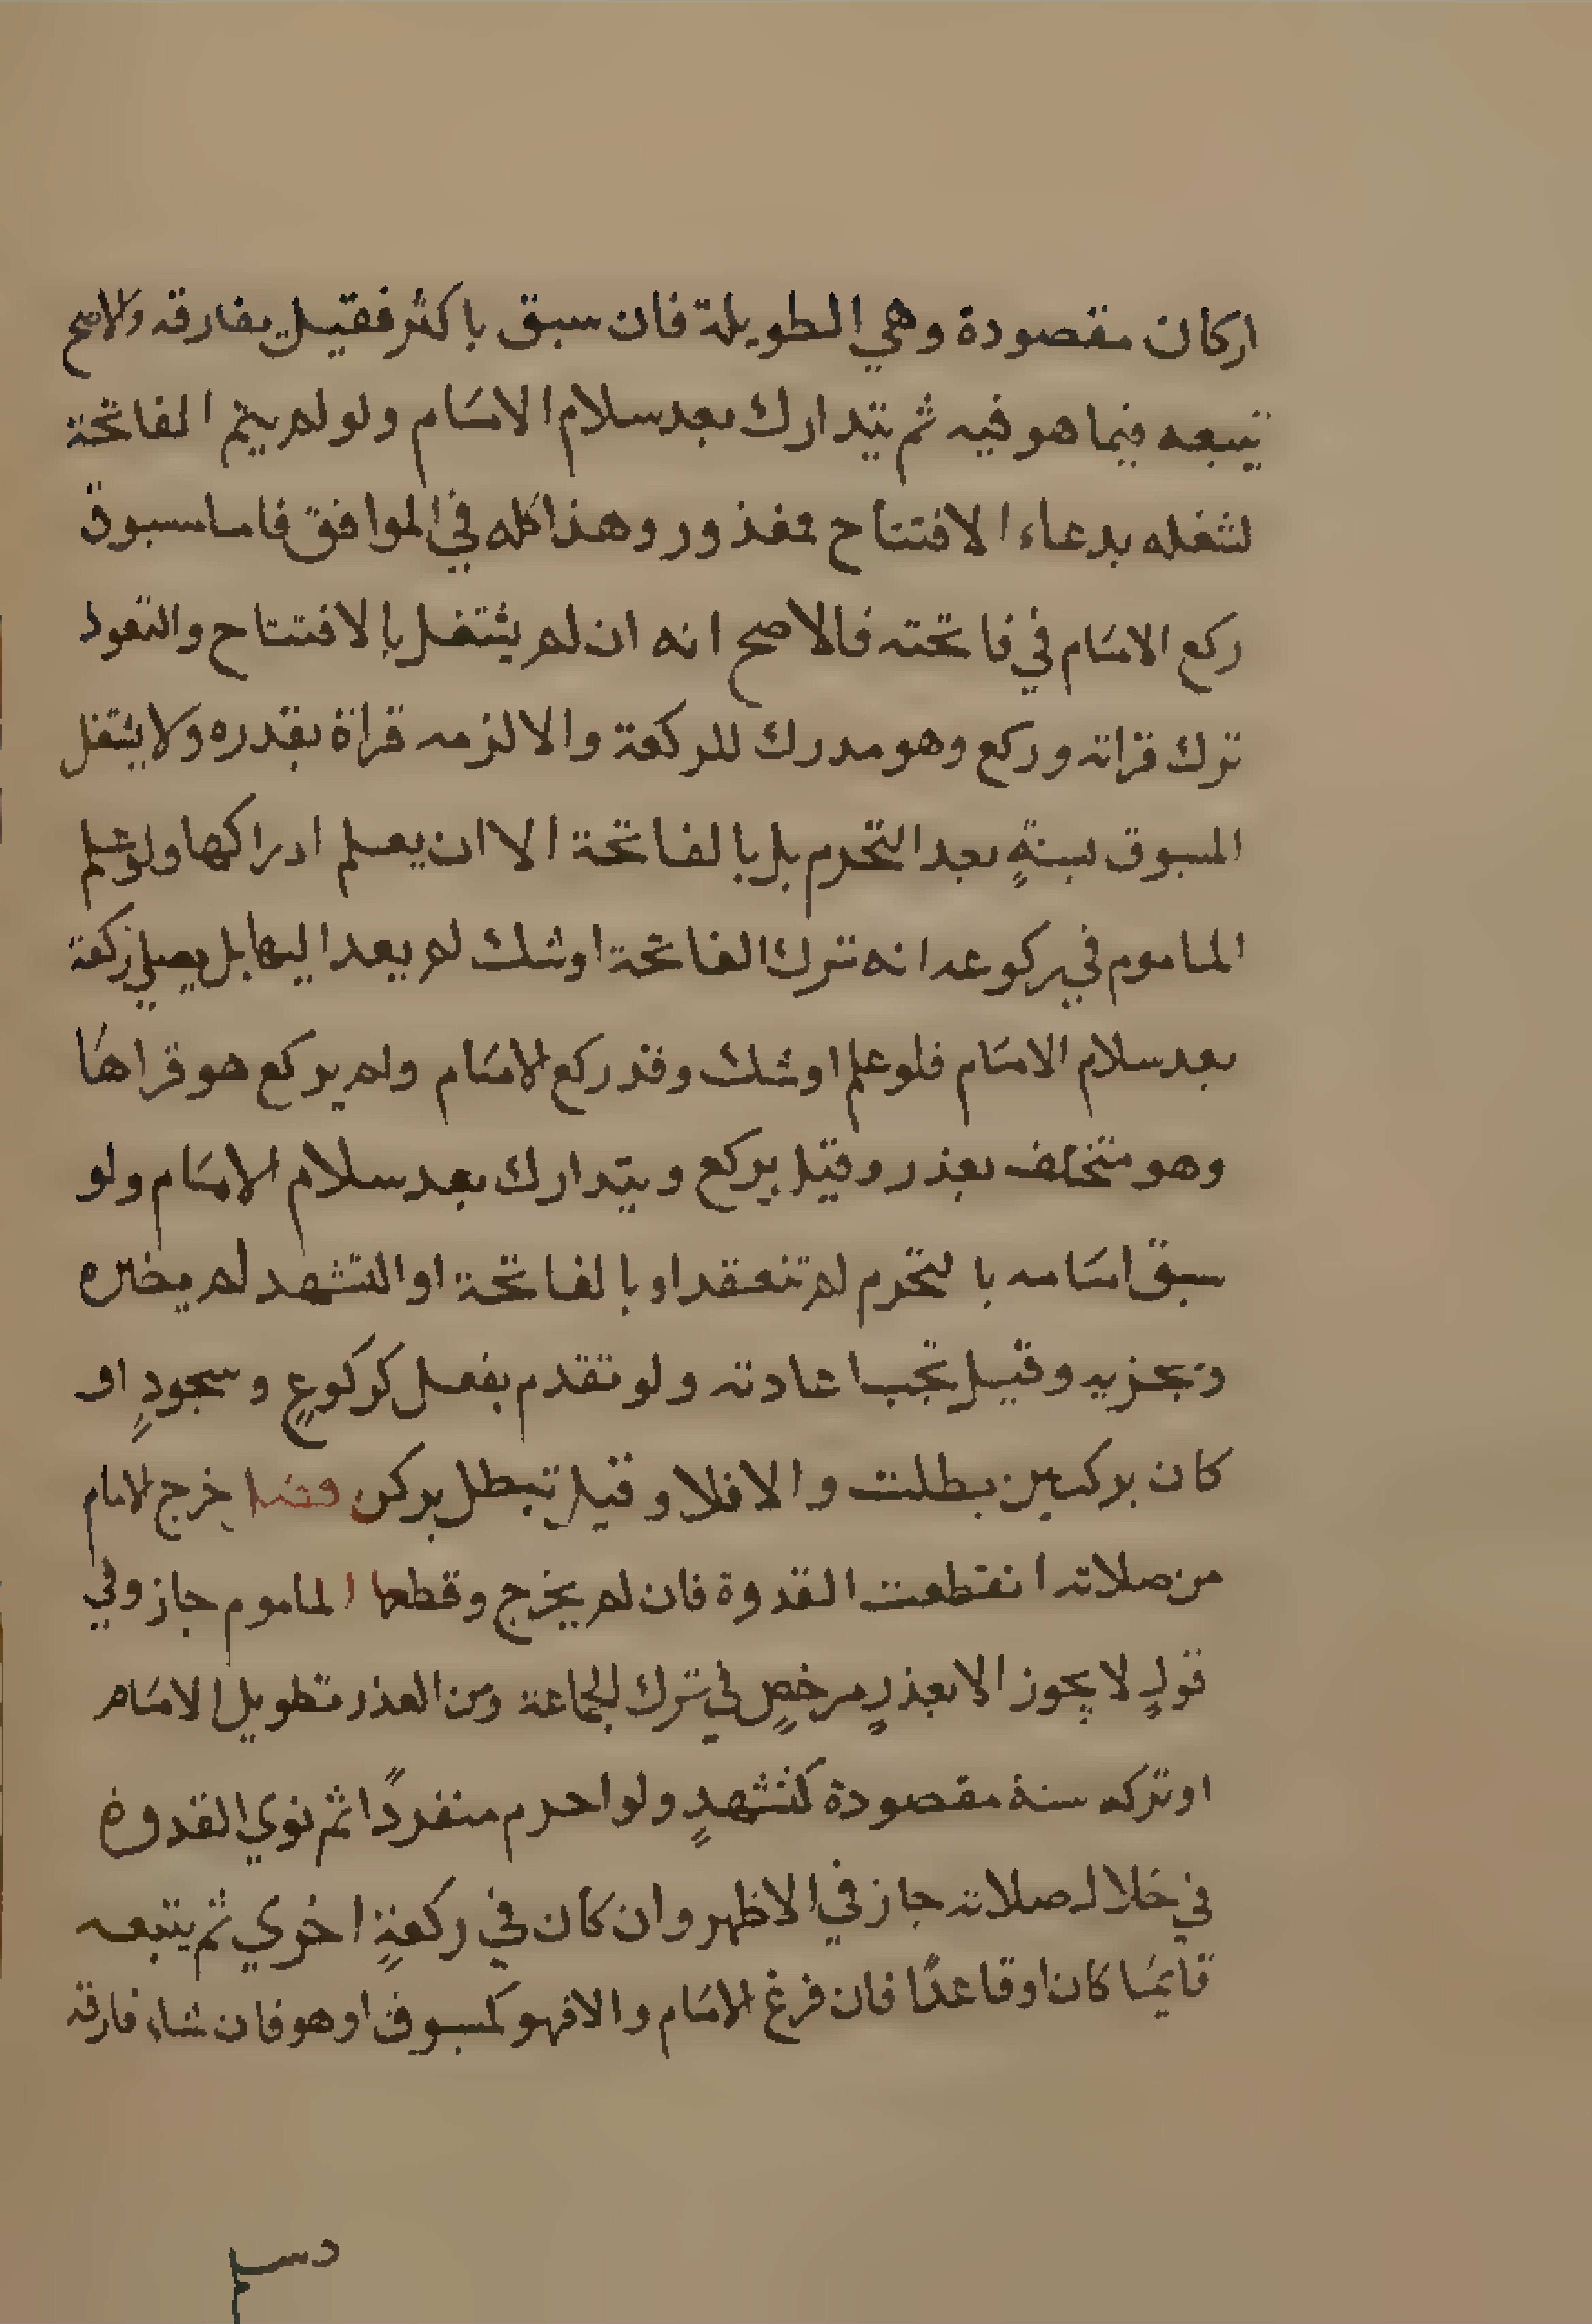 اركان مقصودة وهي الطويلة فان سبق باكثر فقيل يفارقه والاصح
يتبعه فيما هو فيه ثم يتدارك بعد سلام الامام ولو لم يتم الفاتحة
لشغله بدعاء الافتتاح فمعذور وهذا كله في الموافق فاما مسبوق
ركع الامام في فاتحته فالاصح انه ان لم يشتغل بالافتتاح والتعوذ
ترك قراته وركع وهو مدرك للركعة والا لزمه قراة بقدره ولا يشتغل
المسبوق بسنةٍ بعد التحرم بل بالفاتحة الا ان يعلم ادراكها ولو علم
الماموم في ركوعه انه ترك الفاتحة او شك لم يعد اليها بل يصلي ركعة
بعد سلام الامام فلو علم او شك وقد ركع الامام ولم يركع هو قراها
وهو متخلف بعذر وقيل يركع ويتدارك بعد سلام الامام ولو
سبق امامه بالتحرم لم تنعقد او بالفاتحة او التشهد لم يضره
وتجزيه وقيل تجب اعادته ولو تقدم بفعل كركوعٍ وسجودٍ ان
كان بركنين بطلت والا فلا وقيل تبطل بركن فصل خرج الامام
من صلاته انقطعت القدوة فان لم يخرج وقطعها الماموم جاز وفي
قولٍ لا يجوز الا بعذرٍ مرخصٍ في ترك الجماعة ومن العذر تطويل الامام
او تركه سنة مقصودة كتشهدٍ ولو احرم منفردًا ثم نوي القدوة
في خلال صلاته جاز في الاظهر وان كان في ركعةٍ اخري ثم يتبعه
قايمًا كان او قاعدًا فان فرغ الامام والا فهو كمسبوق او هو فان شاء فارقه